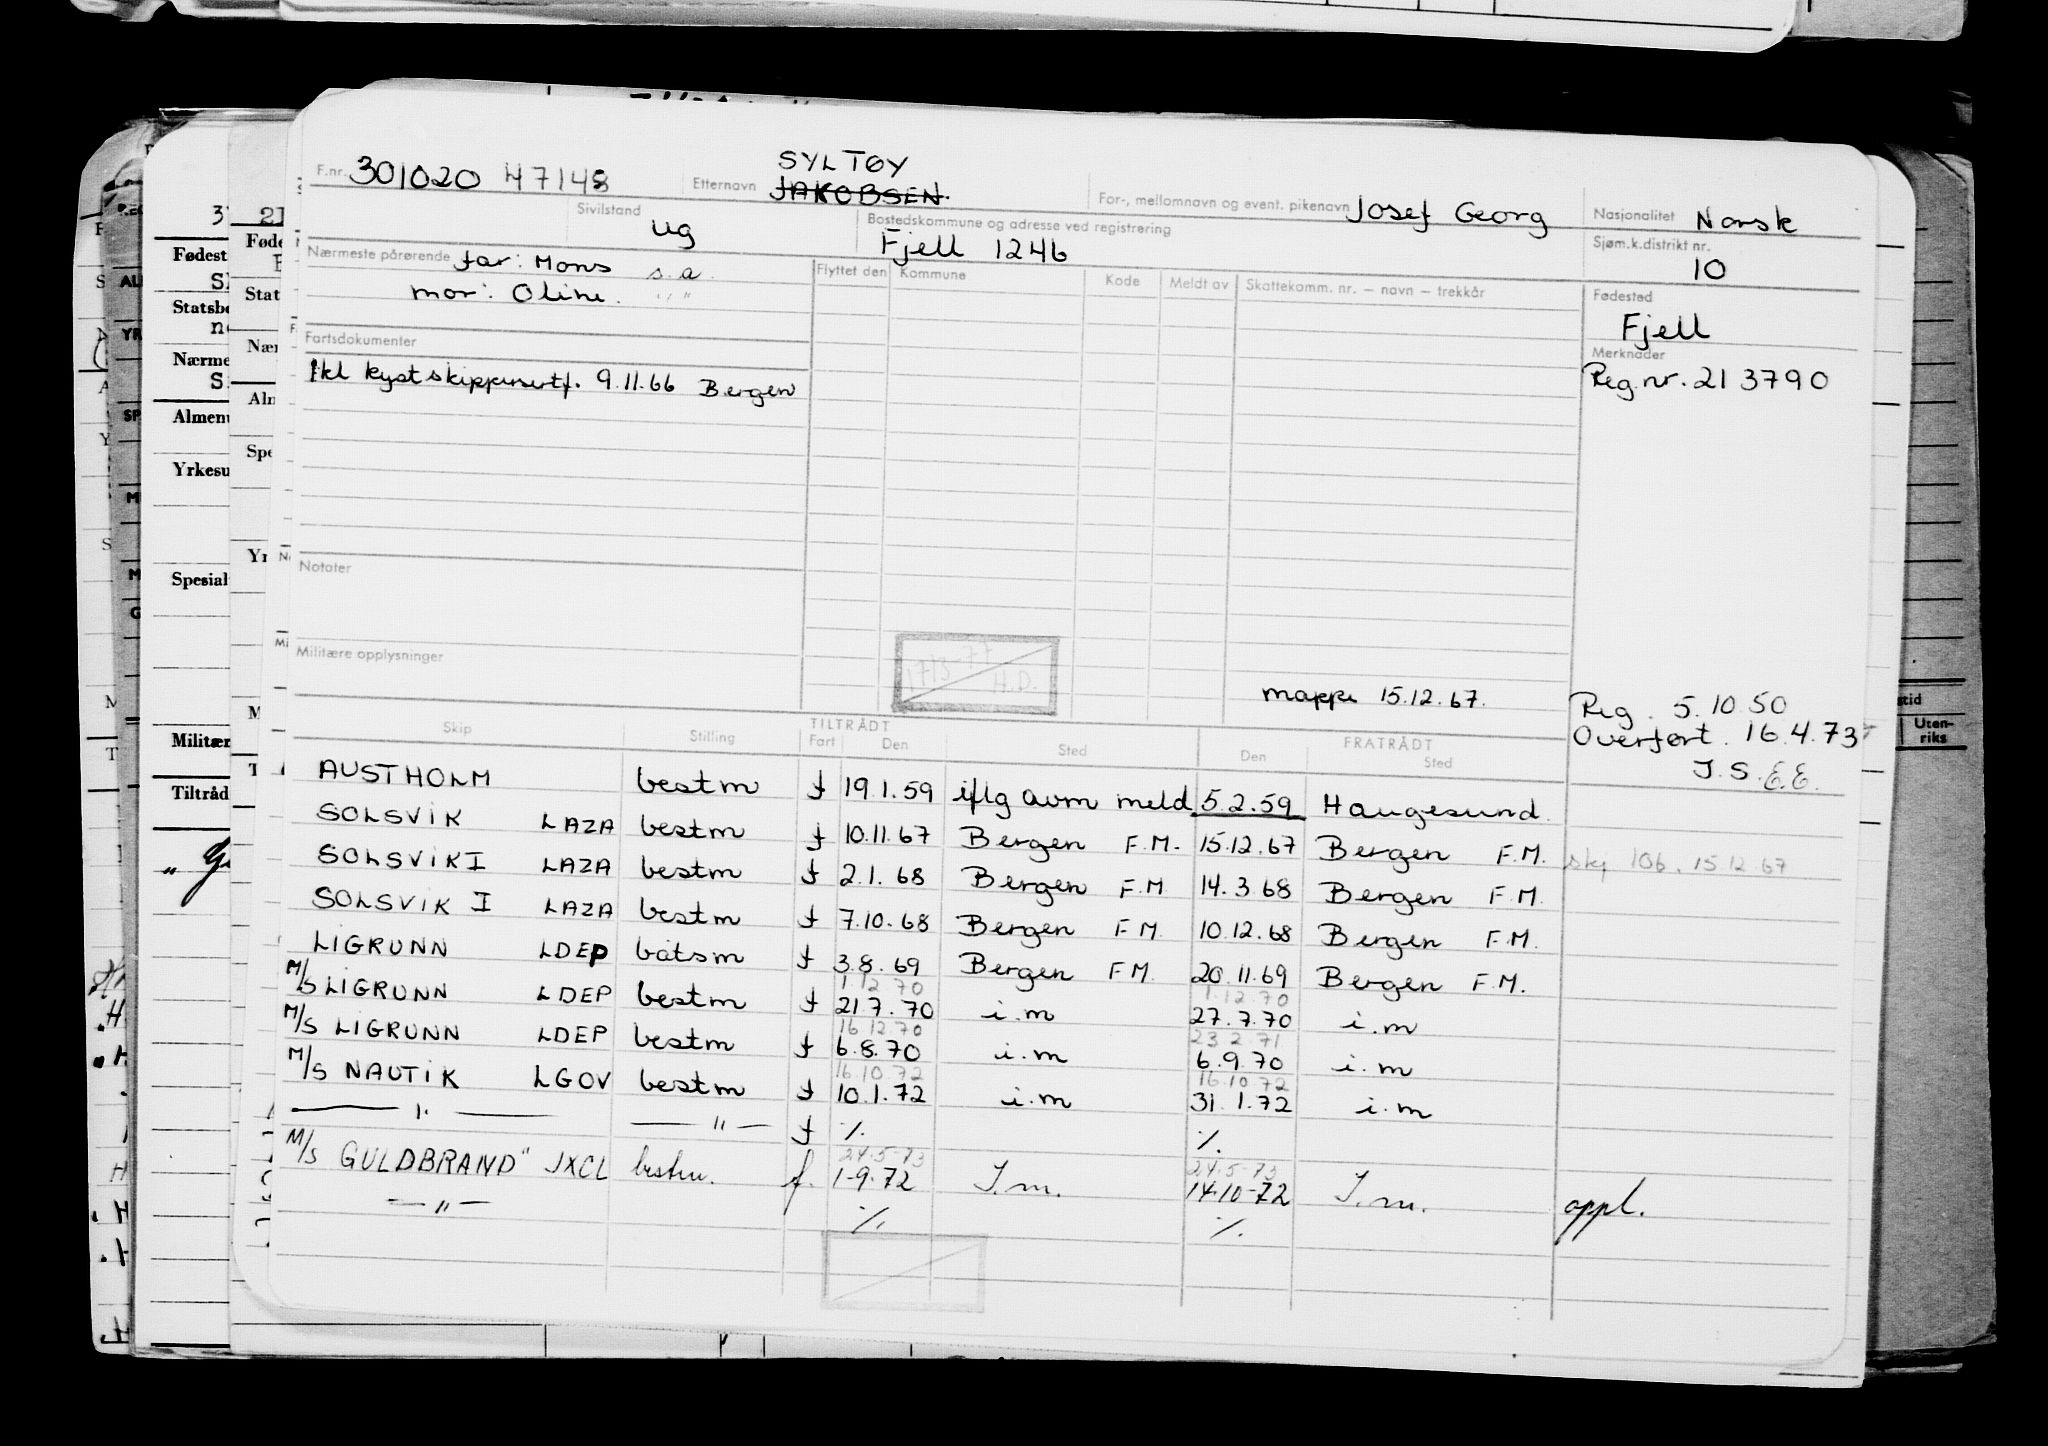 F.nr. 301020 47148 Etternavn SYLTØY JAKOBSEN. For-, mellomnavn og event. pikenavn Josef Georg Nasjonalitet Norsk
Sivilstand ug Bostedskommune og adresse ved registrering Fjell 1246 Sjøm.k.distrikt nr. 10
Nærmeste pårørende far: Mons s.a.
mor: Oline. " "
Flyttet den Kommune Kode Meldt av Skattekomm. nr. – navn – trekkår
Fødested
Fjell
Fartsdokumenter
1kl kystskippersertf. 9.11.66 Bergen
Merknader
Reg.nr. 213790
Notater
Militære opplysninger
H.D.
mappe 15.12.67.
Reg. 5.10.50
Overført. 16.4.73
J.S. E.E.
Skip Stilling TILTRÅDT Fart Den Sted FRATRÅDT Den Sted
AUSTHOLM bestm f 19.1.59 iflg avm meld 5.2.59 Haugesund.
SOLSVIK LAZA bestm f 10.11.67 Bergen F.M. 15.12.67 Bergen F.M. skj 106. 15.12.67
SOLSVIK I LAZA bestm f 2.1.68 Bergen F.M 14.3.68 Bergen F.M.
SOLSVIK I LAZA bestm f 7.10.68 Bergen F.M. 10.12.68 Bergen F.M.
LIGRUNN LDEP båtsm f 3.8.69 Bergen F.M. 20.11.69 Bergen F.M.
1.12.70 1.12.70
M/S LIGRUNN LDEP bestm f 21.7.70 i.m 27.7.70 i.m
16.12.70 23.2.71
M/S LIGRUNN LDEP bestm f 6.8.70 i.m 6.9.70 i.m
16.10.72 16.10.72
M/S NAUTIK LGOV bestm f 10.1.72 i.m 31.1.72 i.m
— " — — " — f ./. ./.
24.5-73 24.5-73
M/S GULDBRAND" JXCL bestm. f. 1-9.72 I.m. 14.10-72 I.m. oppl.
— " — ./. ./.
Fødest
Statsb
Nærme
Almen
Yrkesu
Spesial
Militær
Tiltråd
Uten-
riks